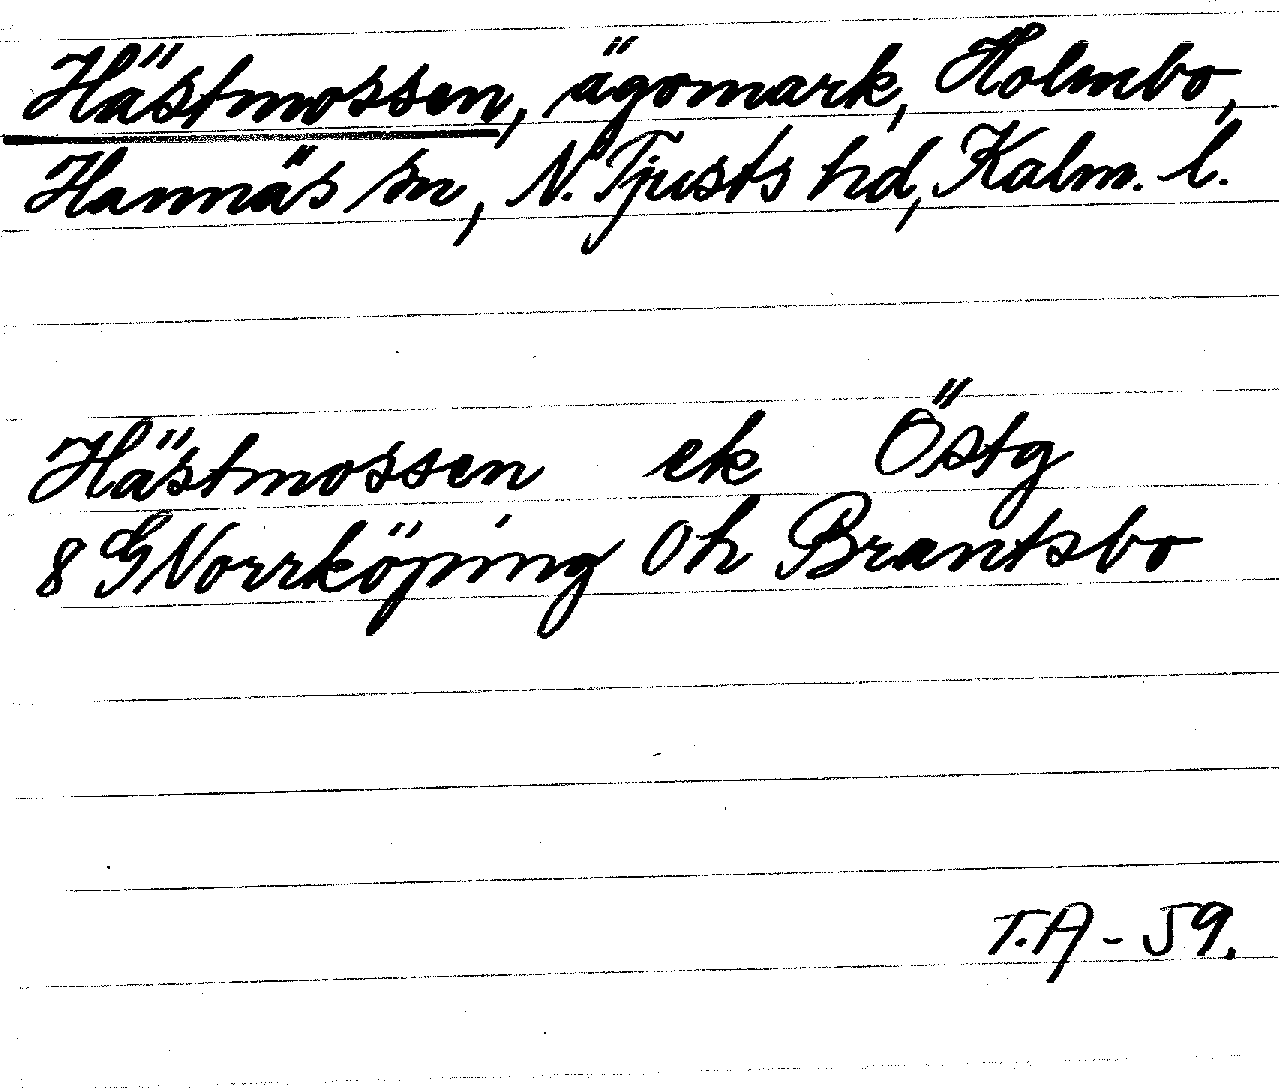 Hästmossen, ägomark, Holmbo,
Hannäs sn, N. Tjusts hd, Kalm. l.
Hästmossen ek Östg
8 G Norrköping Oh Brantsbo
T.A - 59.